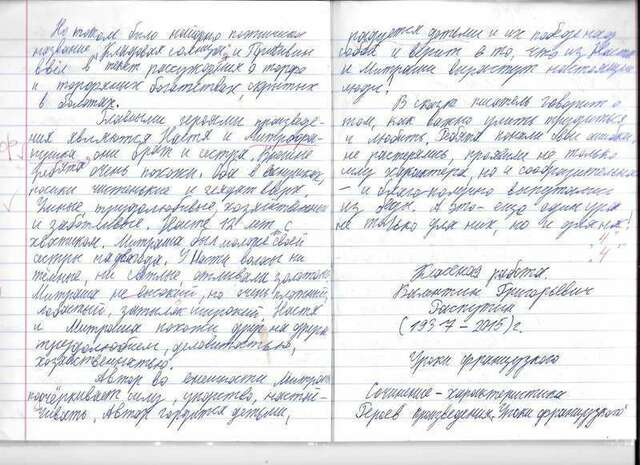 На этом было найдено поэтичное
название "Кладовая солнца", и Пришвин
ввёл в текст рассуждения о торфе
и торфяных богатствах, скрытых
в болотах.
Главными героями произведе-
ния являются Настя и Митроша
они брат и сестра.
ребята очень похожи. Оба в веснушках,
носики чистенькие и глядят вверх
Умные трудолюбивые, хозяйственные
и заботливые. Насте 12 лет с
хвостиком. Митраша был моложе своей
сестры на два года. У Насти волосы ни
тёмные, ни светлые отливали золотом.
Митраша не высокий, но очень плотный,
лобастый, затылок широкий. Настя
и Митраша похожи друг на друга
трудолюбием, деловитостью,
хозяйственностью.
Автор во внешности Митраши
подчёркивает силу, упорство, настой-
чивость. Автор гордится детьми,
гордится детьми и их победе над
собой и верит в то, что из Насти
и Митраши вырастут настоящие
люди!
В сказке писатель говорит о
том, как важно уметь трудиться
и любить. Ребята поняли свои ошибки,
не растерялись, проявили не только
силу характера, но и сообразительность
и благополучно выпутались
из беды. А это - ещё один урок
не только для них, но и для нас!
"4"
"4"
Классная работа.
Валентин Григорьевич
Распутин
(1937-2015)г.
Уроки французского
Сочинение-характеристика
Героев произведения "Уроки французского"